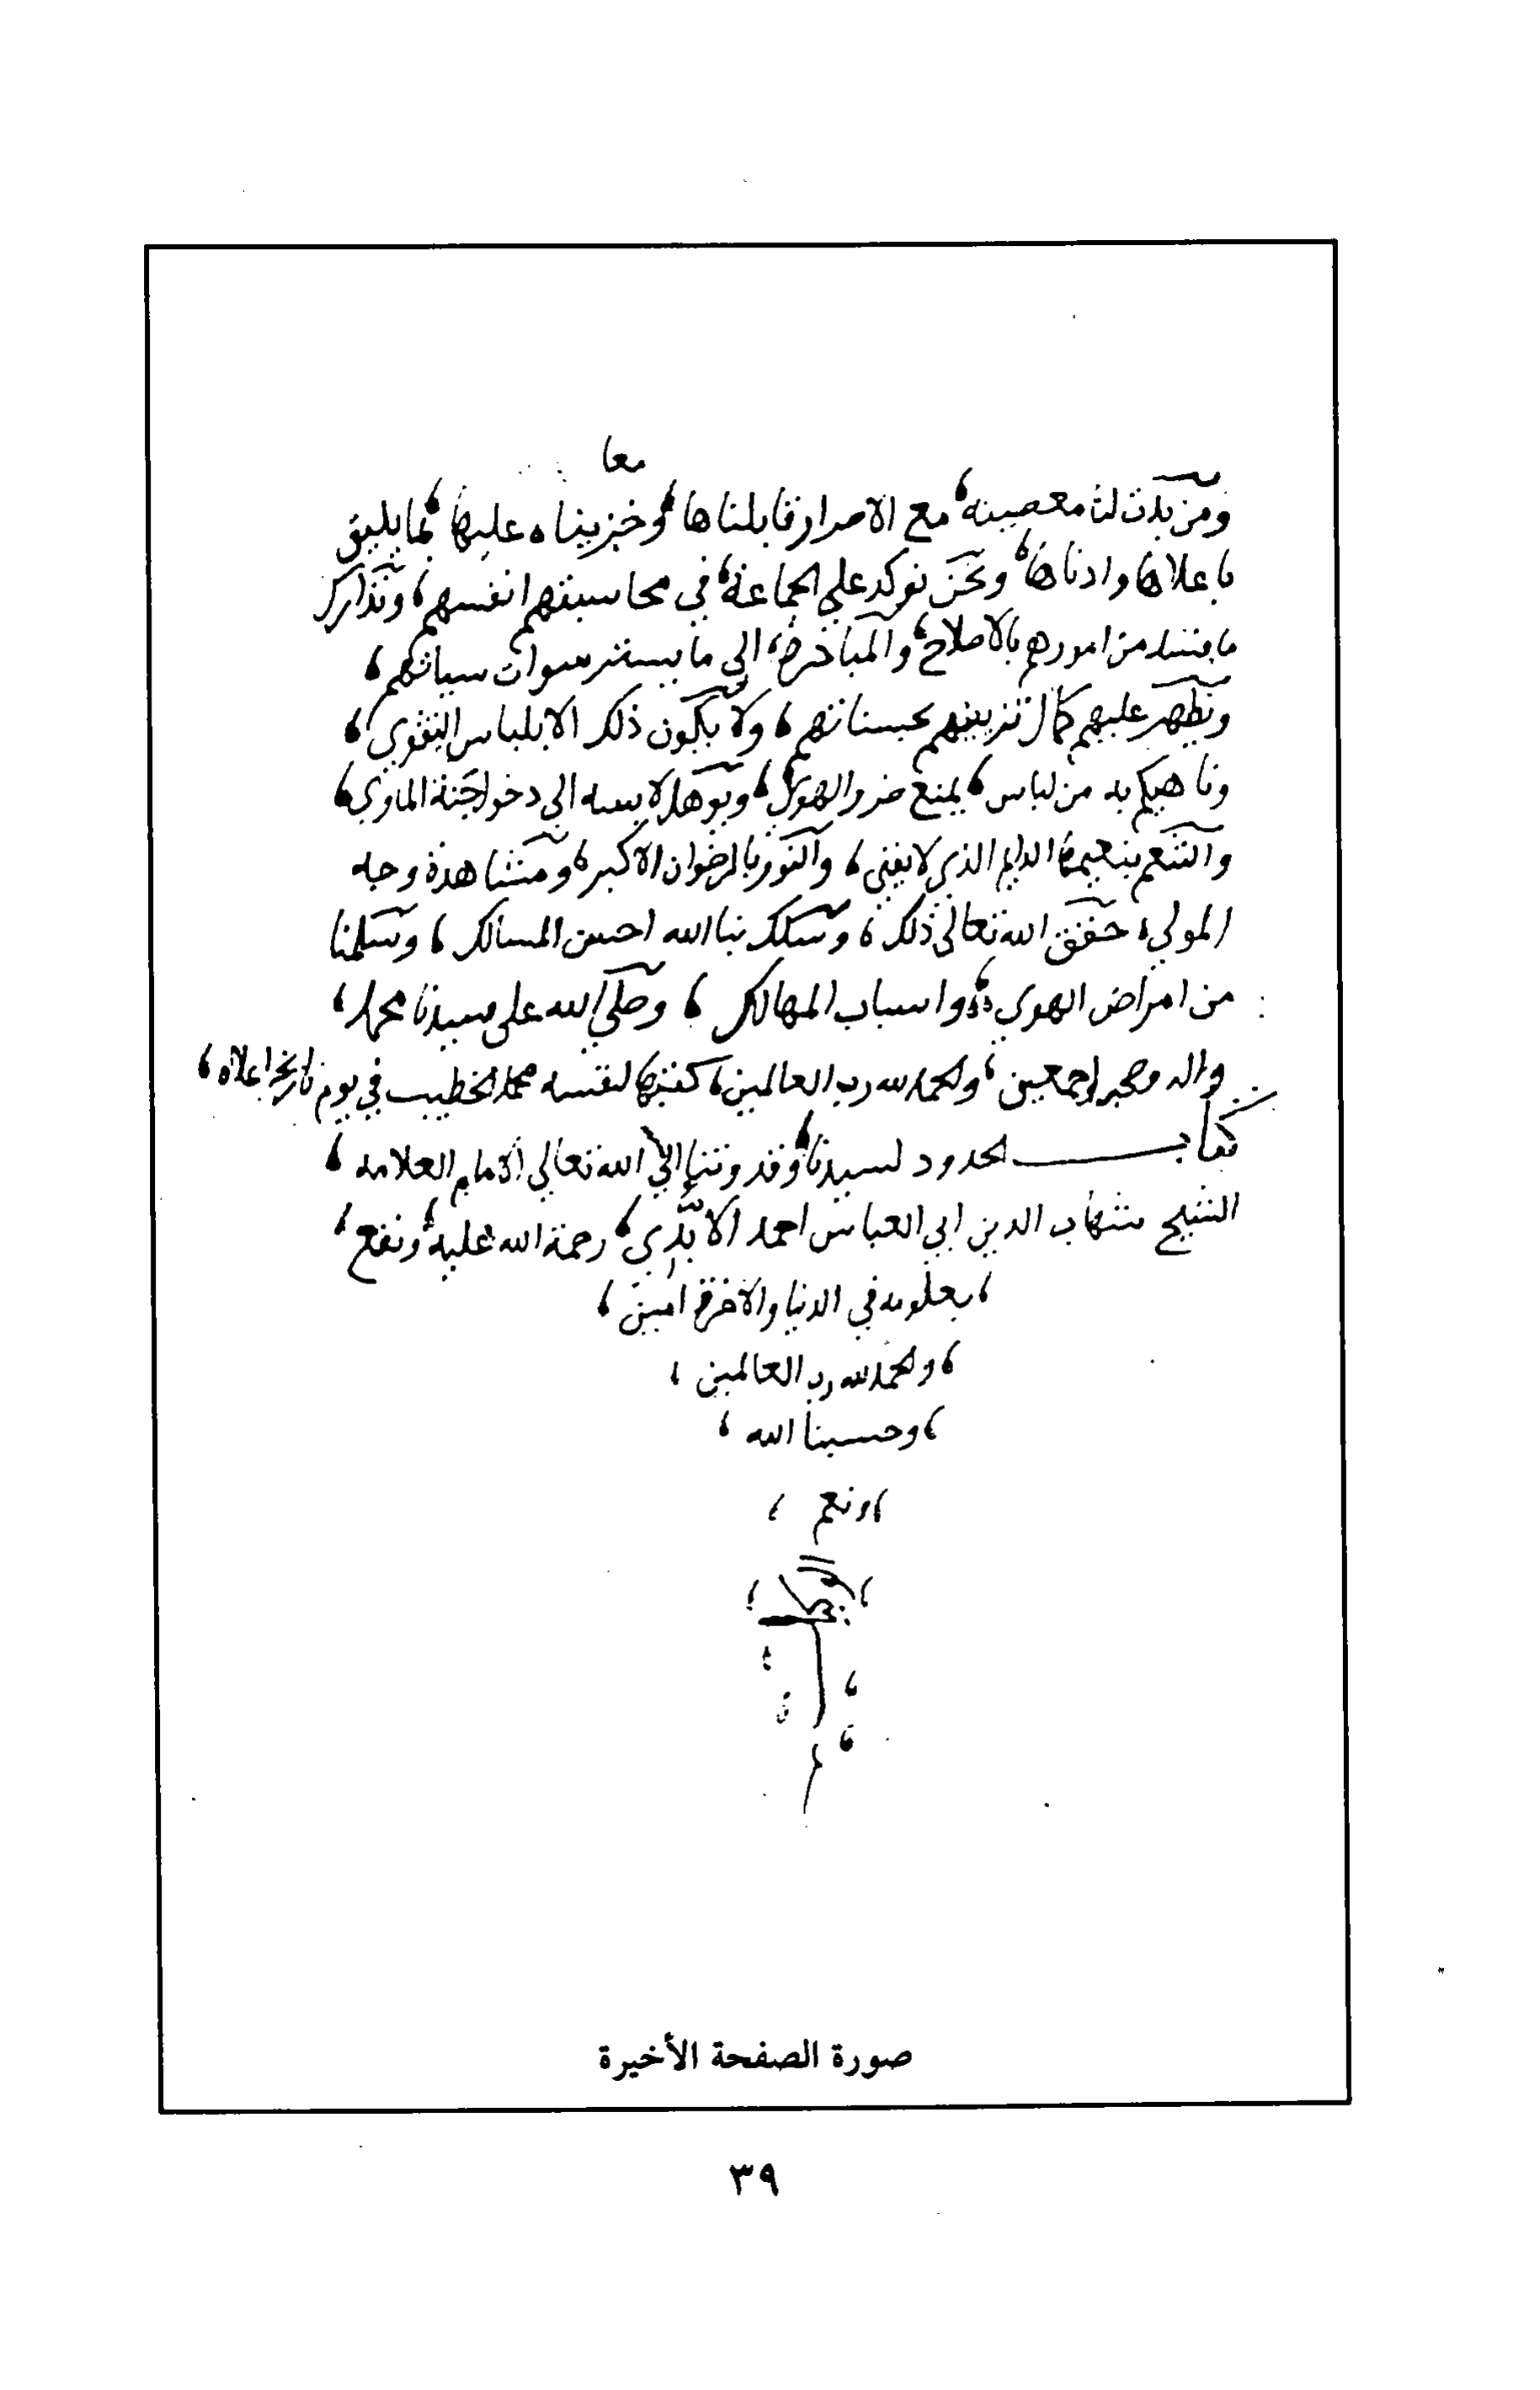 معا
ومن بدت لنا معصيته، مع الاصرار قابلناها، وخزيناه عليها، بما يليق
باعلاها وادناها، ونحن نوكد علي الجماعة، في محاسبتهم انفسهم، وتدارك
ما فسد من امورهم بالاصلاح، والمبادرة، الي ما يستر سوات سياتهم،
وتظهر عليهم كمال تزيينهم بحسناتهم، ولا يكون ذلك الا بلباس التقوي،
وناهيكم به من لباس، يمنع ضرر الهوي، ويوهل لابسه الي دخول جنة الماوي،
والتنعم بنعيمها الدايم الذي لا يفني، والفوز بالرضوان الاكبر، ومشاهدة وجه
المولي، حقق الله تعالى ذلك، وسلك بنا الله احسن المسالك، وسلمنا
من امراض الهوي، واسباب المهالك، وصلى الله على سيدنا محمد،
واله وصحبه اجمعين، والحمد لله رب العالمين، كتبتها لنفسه محمد الخطيب في يوم تاريخ اعلاه،
كتاب الحدود لسيدنا وقدوتنا الي الله تعالي الامام العلامه،
الشيخ شهاب الدين ابي العباس احمد الابدي، رحمة الله عليه، ونفع،
، بعلومه في الدنيا والاخرة امين،
، والحمد لله رب العالمين،
، وحسبنا الله،
، ونعم،
صورة الصفحة الأخيرة
٣٩